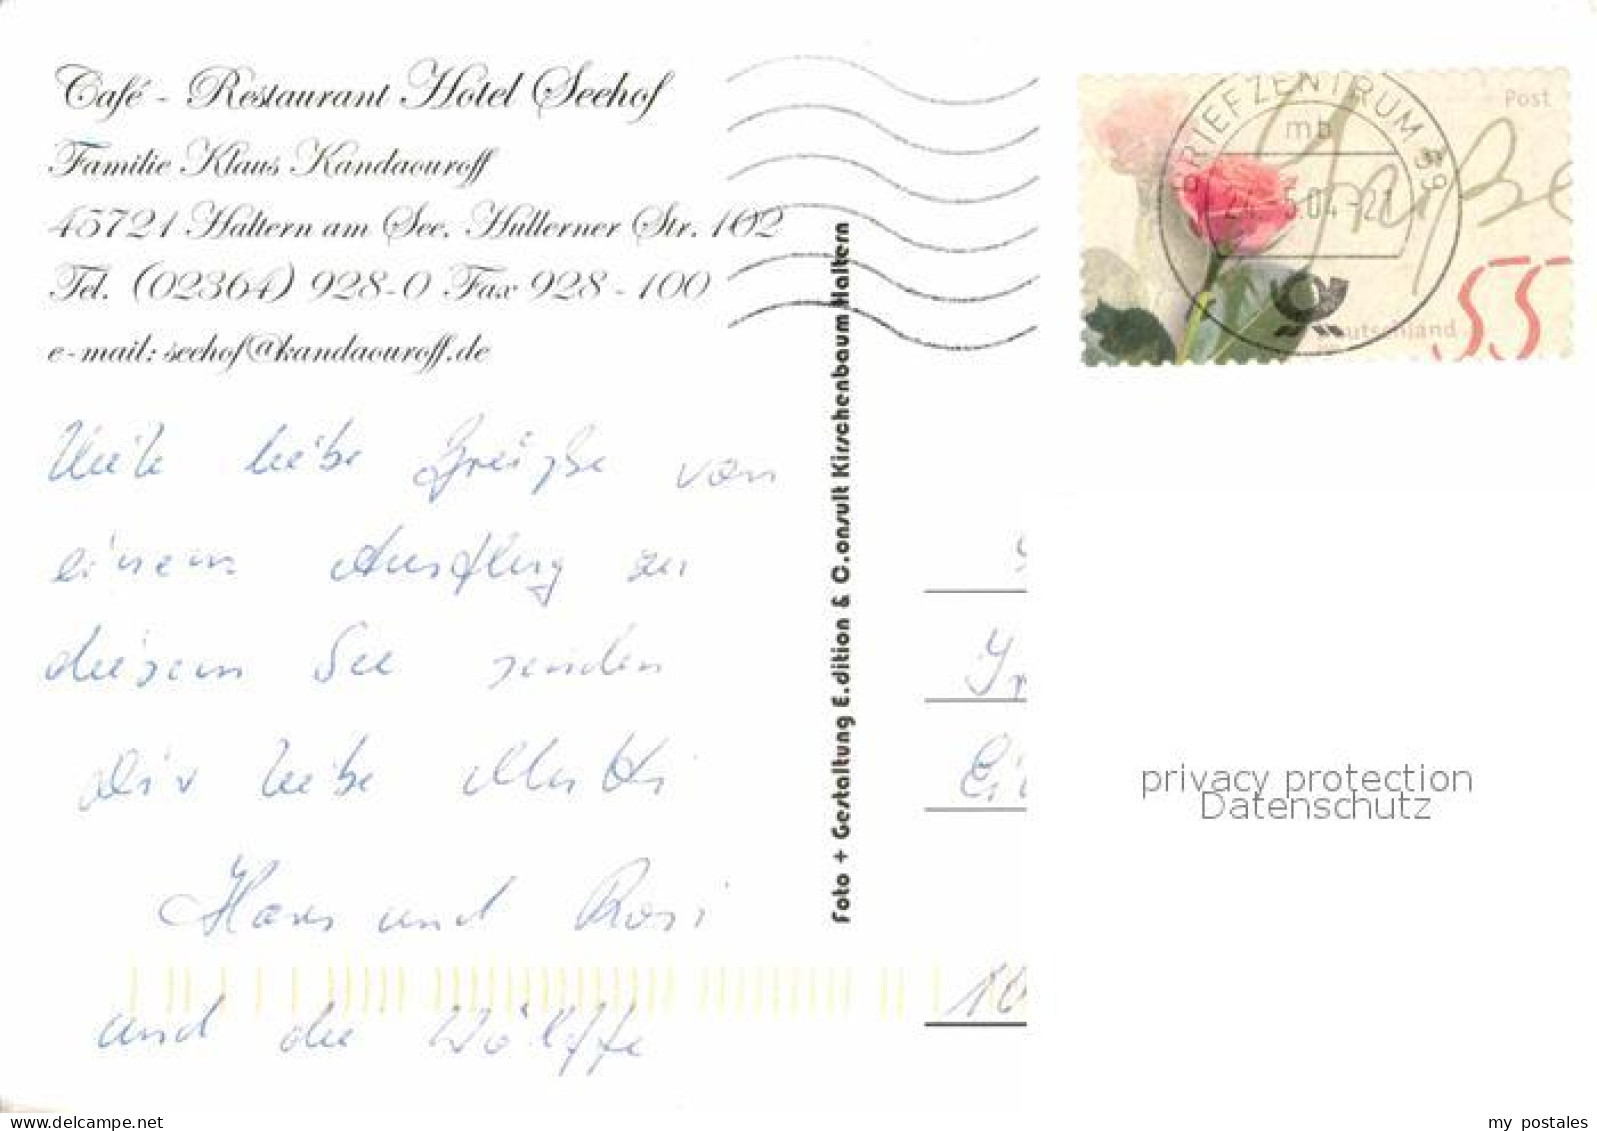 Café - Restaurant Hotel Seehof
Familie Klaus Kandaouroff
45721 Haltern am See, Hullerner Str. 102
Tel. (02364) 928-0 Fax 928 - 100
e-mail: seehof@kandaouroff.de
Viele liebe Grüße von
einem Ausflug zu
diesem See senden
Dir liebe
Hans und Rosi
und die Wölffe
Foto + Gestaltung E.dition & C.onsult Kirschenbaum Haltern
BRIEFZENTRUM
mb
5.04-21
Post
Grüße
Deutschland
55
privacy protection
Datenschutz
www.delcampe.net
my_postales